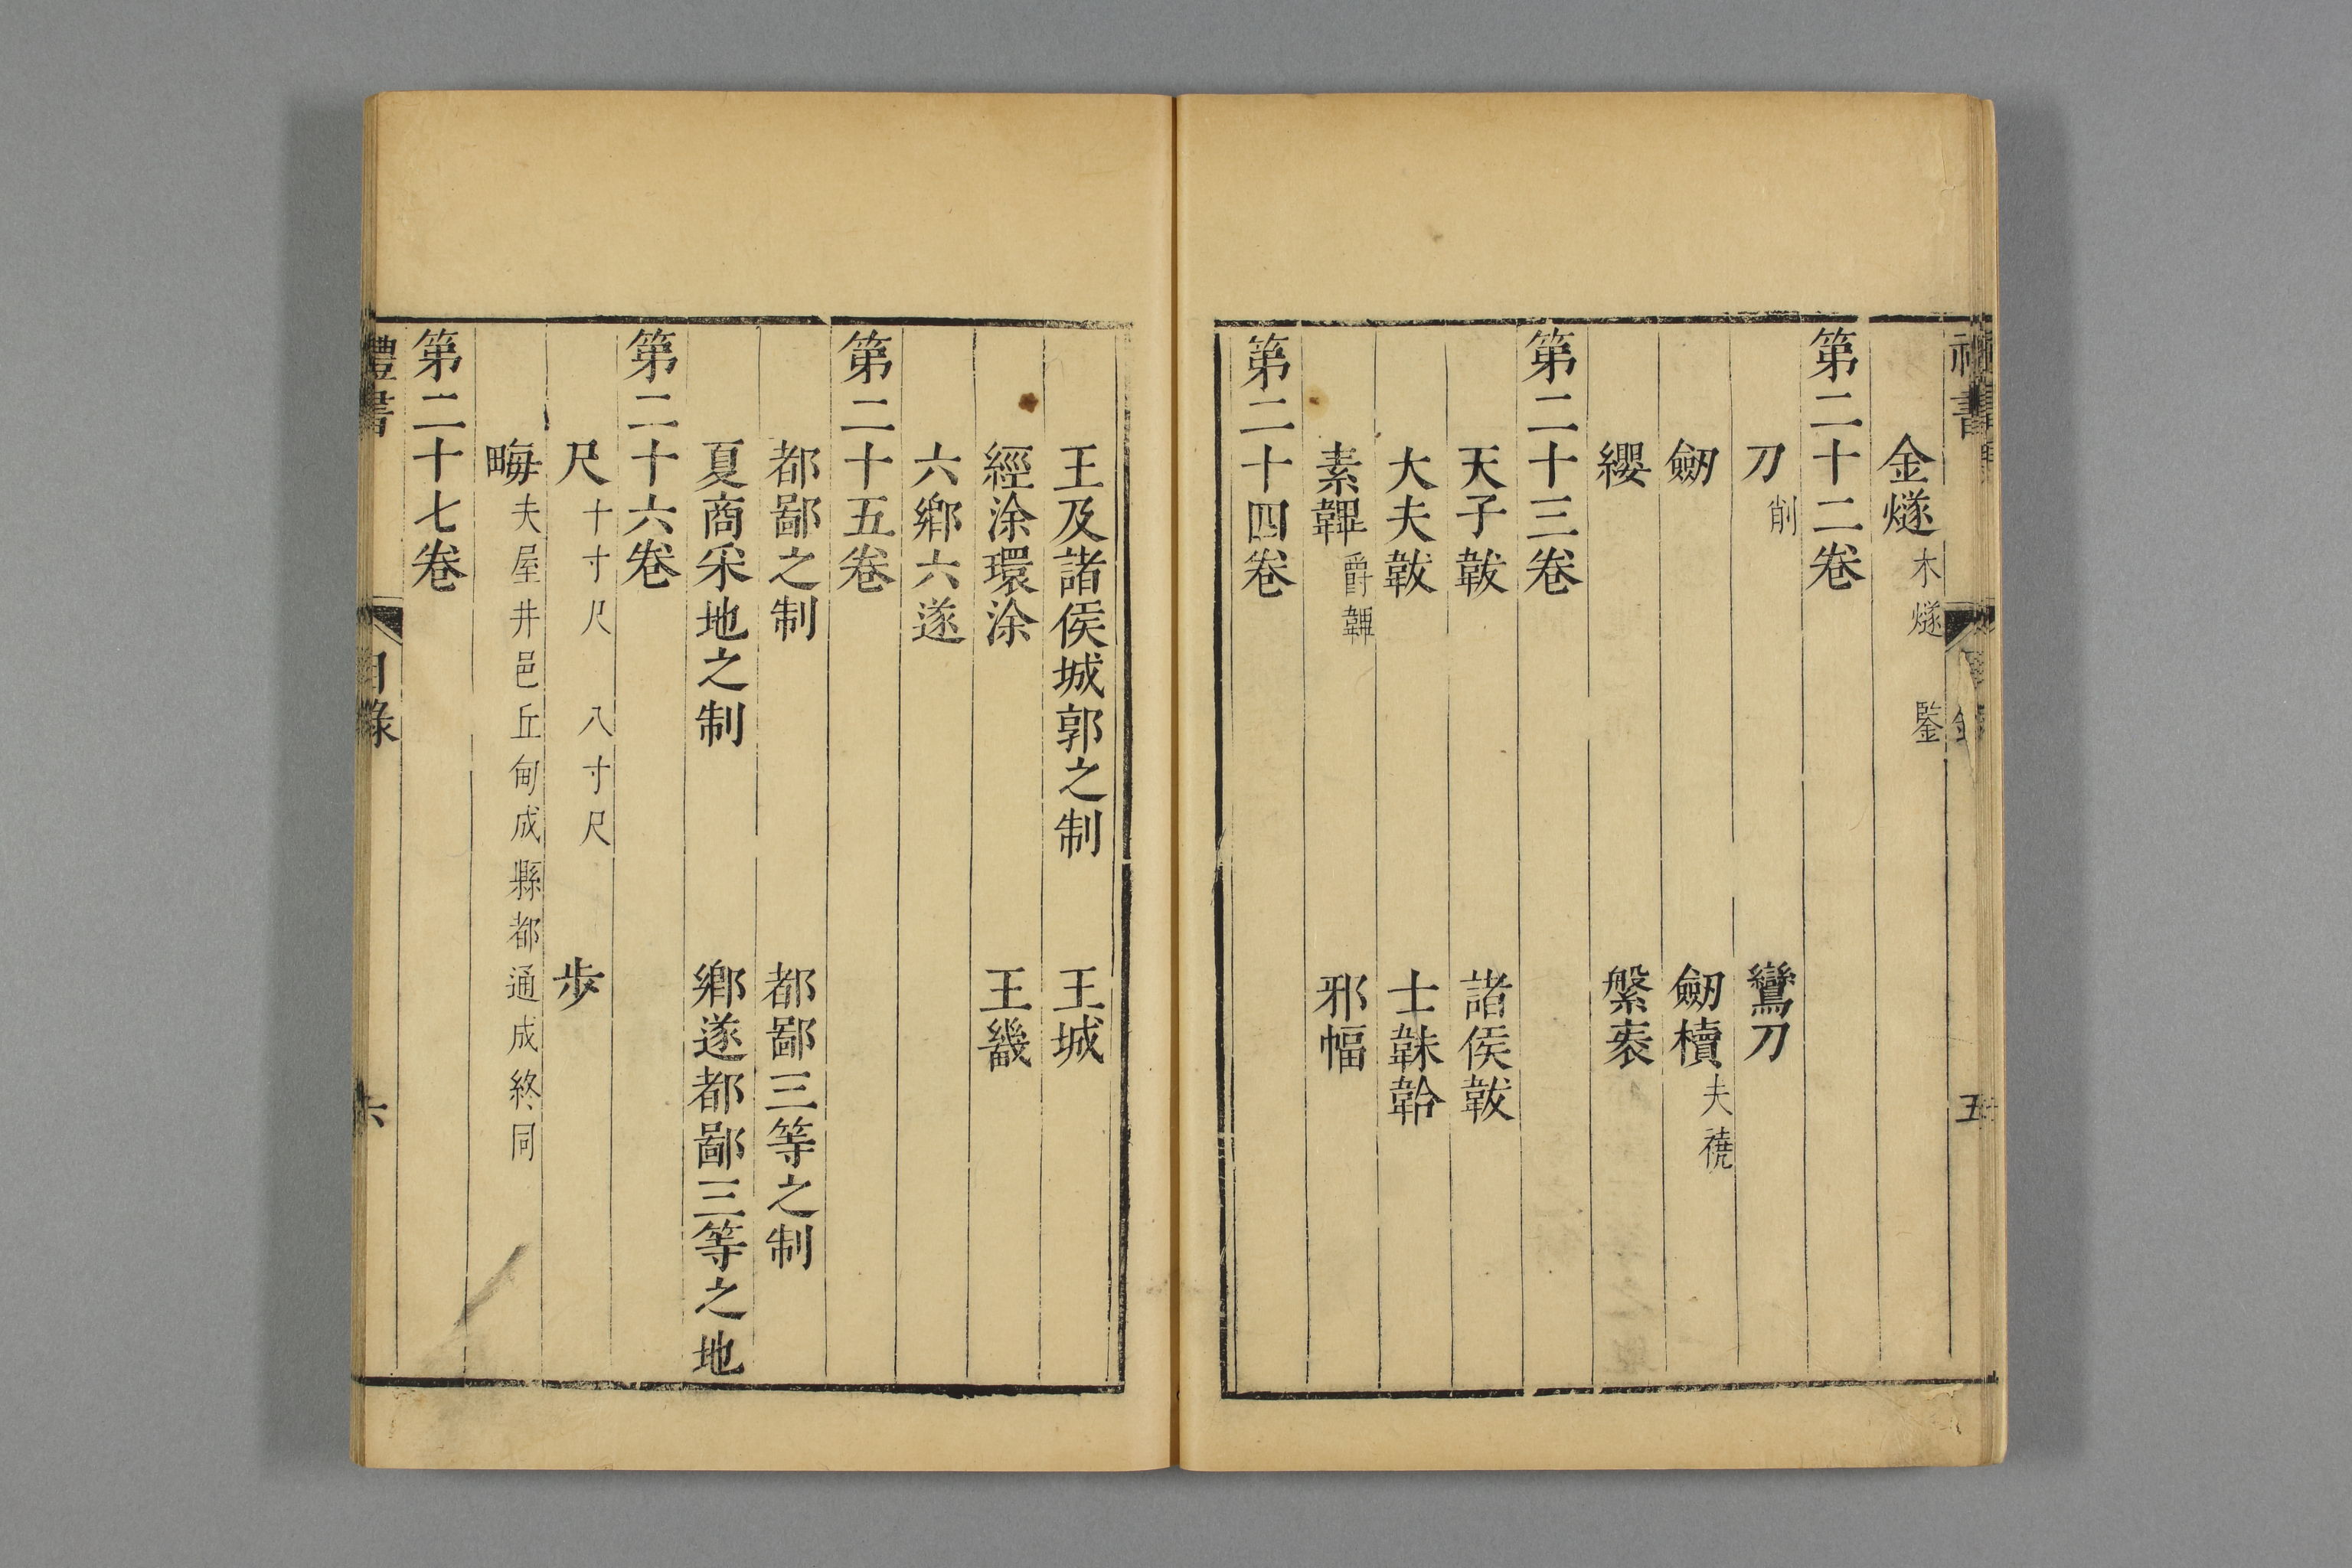 金燧木燧　鑒
第二十二卷
刀削　鸞刀
劒　劒櫝夫襓
纓　鞶袠
第二十三卷
天子韍　諸侯韍
大夫韍　士韎韐
素韠爵韠　邪幅
第二十四卷
王及諸侯城郭之制　王城
經涂環涂　王畿
六鄉六遂
第二十五卷
都鄙之制　都鄙三等之制
夏商采地之制　鄉遂都鄙三等之地
第二十六卷
尺十寸尺　八寸尺　步
畮夫屋井邑丘甸成縣都通成終同
第二十七卷
禮書　目錄　六